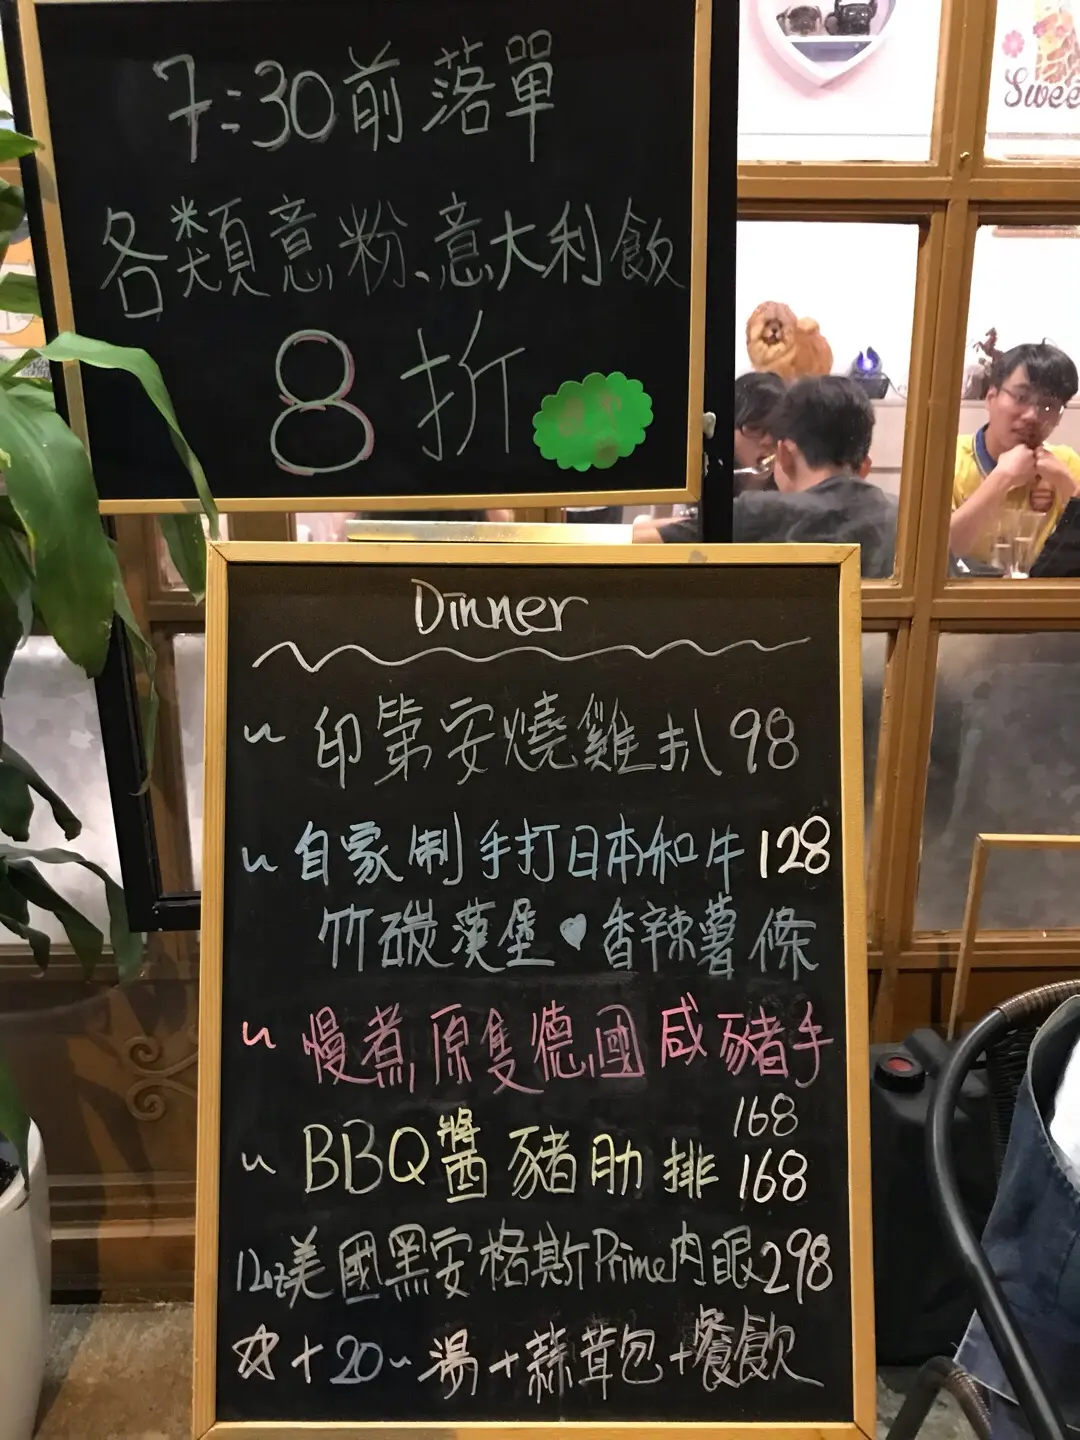 Swee
7:30前落單
各類意粉、意大利飯
8折
Dinner
~ 印第安燒雞扒 98
~ 自家制手打日本和牛 128
竹碳漢堡♥香辣薯條
~ 慢煮原隻德國咸豬手
168
~ BBQ醬豬肋排 168
12oz美國黑安格斯Prime肉眼298
☆+20~湯+蒜茸包+餐飲